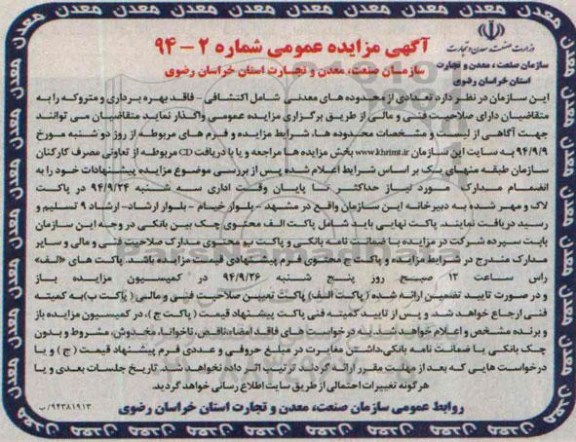 وزارت صنعت، معدن و تجارت
سازمان صنعت، معدن و تجارت
استان خراسان رضوی
آگهی مزایده عمومی شماره ۲ - ۹۴
سازمان صنعت، معدن و تجارت استان خراسان رضوی
این سازمان در نظر دارد تعدادی از محدوده های معدنی شامل اکتشافی - فاقد بهره برداری و متروکه را به
متقاضیان دارای صلاحیت فنی و مالی از طریق برگزاری مزایده عمومی واگذار نماید متقاضیان می توانند
جهت آگاهی از لیست و مشخصات محدوده ها، شرایط مزایده و فرم های مربوطه از روز دو شنبه مورخ
۹۴/۹/۹ به سایت این سازمان www.khrimt.ir بخش مزایده ها مراجعه و یا با دریافت CD مربوطه از تعاونی مصرف کارکنان
سازمان طبقه منهای یک بر اساس شرایط اعلام شده پس از بررسی موضوع مزایده پیشنهادات خود را به
انضمام مدارک مورد نیاز حداکثر تا پایان وقت اداری سه شنبه ۹۴/۹/۲۴ در پاکت
لاک و مهر شده به دبیرخانه این سازمان واقع در مشهد - بلوار خیام - بلوار ارشاد- ارشاد ۹ تسلیم و
رسید دریافت نمایند. پاکت نهایی باید شامل پاکت الف محتوی چک بین بانکی در وجه این سازمان
بابت سپرده شرکت در مزایده یا ضمانت نامه بانکی و پاکت ب محتوی مدارک صلاحیت فنی و مالی و سایر
مدارک مندرج در شرایط مزایده و پاکت ج محتوی فرم پیشنهادی قیمت مزایده باشد. پاکت های «الف»
راس ساعت ۱۲ صبح روز پنج شنبه ۹۴/۹/۲۶ در کمیسیون مزایده باز
و در صورت تایید تضمین ارائه شده (پاکت الف) پاکت تعیین صلاحیت فنی و مالی ( پاکت ب) به کمیته
فنی ارجاع خواهد شد و پس از تایید کمیته فنی پاکت پیشنهاد قیمت ( پاکت ج )، در کمیسیون مزایده باز
و برنده مشخص و اعلام خواهد شد. به درخواست های فاقد امضاء، ناقص، ناخوانا، مخدوش، مشروط و بدون
چک بانکی یا ضمانت نامه بانکی، داشتن مغایرت در مبلغ حروفی و عددی فرم پیشنهاد قیمت ( ج ) و یا
درخواست هایی که بعد از مهلت مقرر ارائه گردند ترتیب اثر داده نخواهد شد. تاریخ جلسات بعدی و یا
هرگونه تغییرات احتمالی از طریق سایت اطلاع رسانی خواهد گردید.
روابط عمومی سازمان صنعت، معدن و تجارت استان خراسان رضوی
۹۴۳۸۱۹۱۳/ب